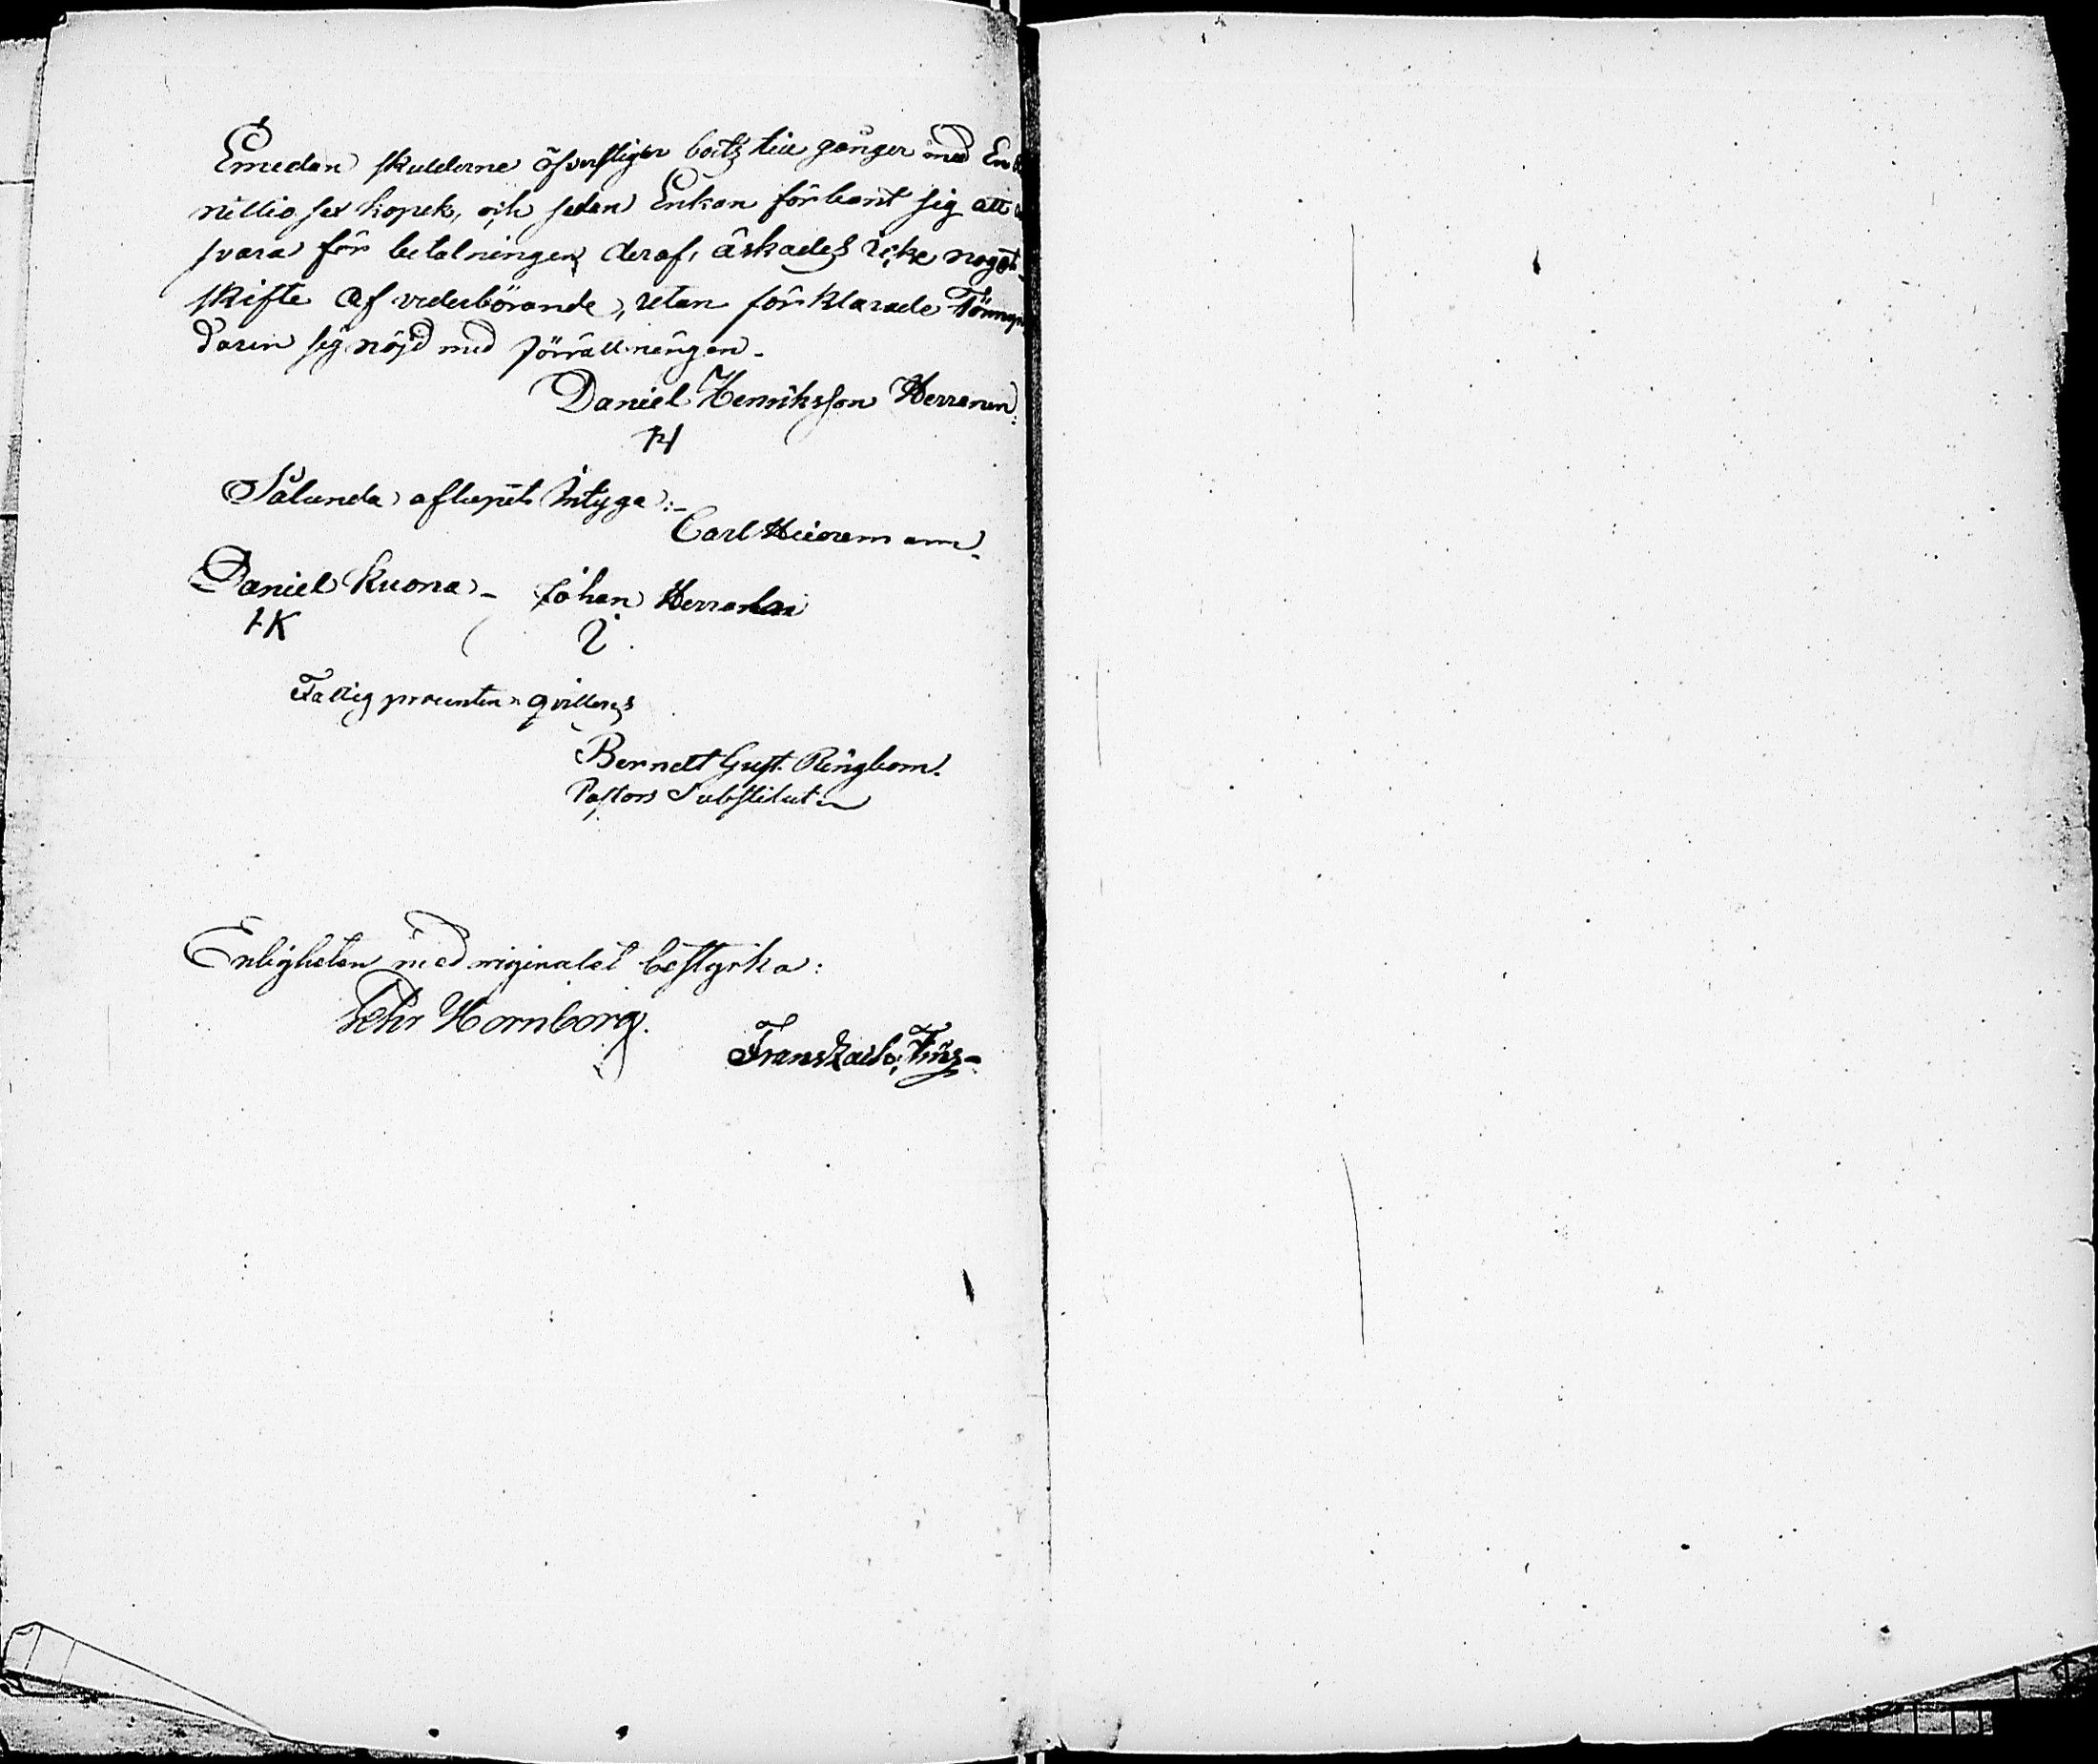 Emedan skulderne öfverstiger boets till gånger med En
nittio sex kopek, och sedan Enkan förbant sig att
svara för betalningen deraf, äskades icke något
skifte af vederbörande, utan förklarade Förmyn
daren sig nöjd med förrättningen.
Daniel Henriksson Herranen
H
Sålunda aflupit intyga:
Carl
Daniel Kuona - Johan Herranen
IK
Fattig procenten qvitteras
Berndt Gust. Ringbom.
Pastors Substitut
Enligheten med originalet bestyrka:
Fehr Hornborg.
Frans